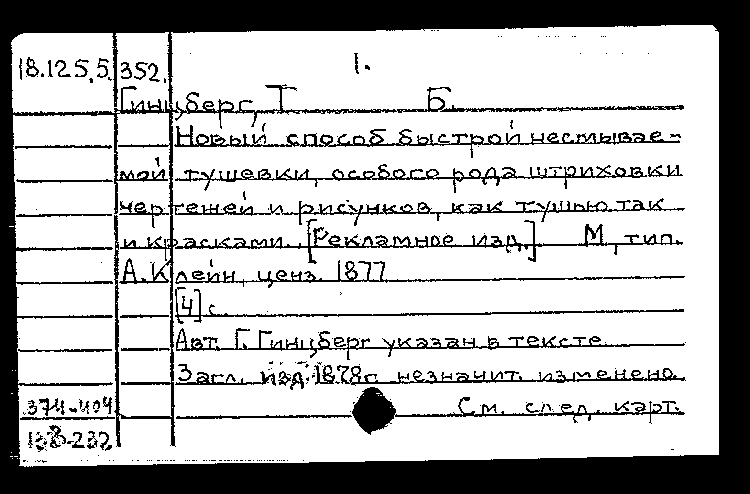 18.125.5.352. 1.
Гинцберг, Г Б.
Новый способ быстрой несмывае-
мой тушевки, особого рода штриховки
чертежей и рисунков, как тушью так
и красками. [Рекламное изд.] М, тип.
А. Клейн, ценз. 1877
[4] с.
Авт. Г. Гинцберг указан в тексте
Загл. изд. 1878г незначит. изменено
374-404 См. след. карт.
138-232